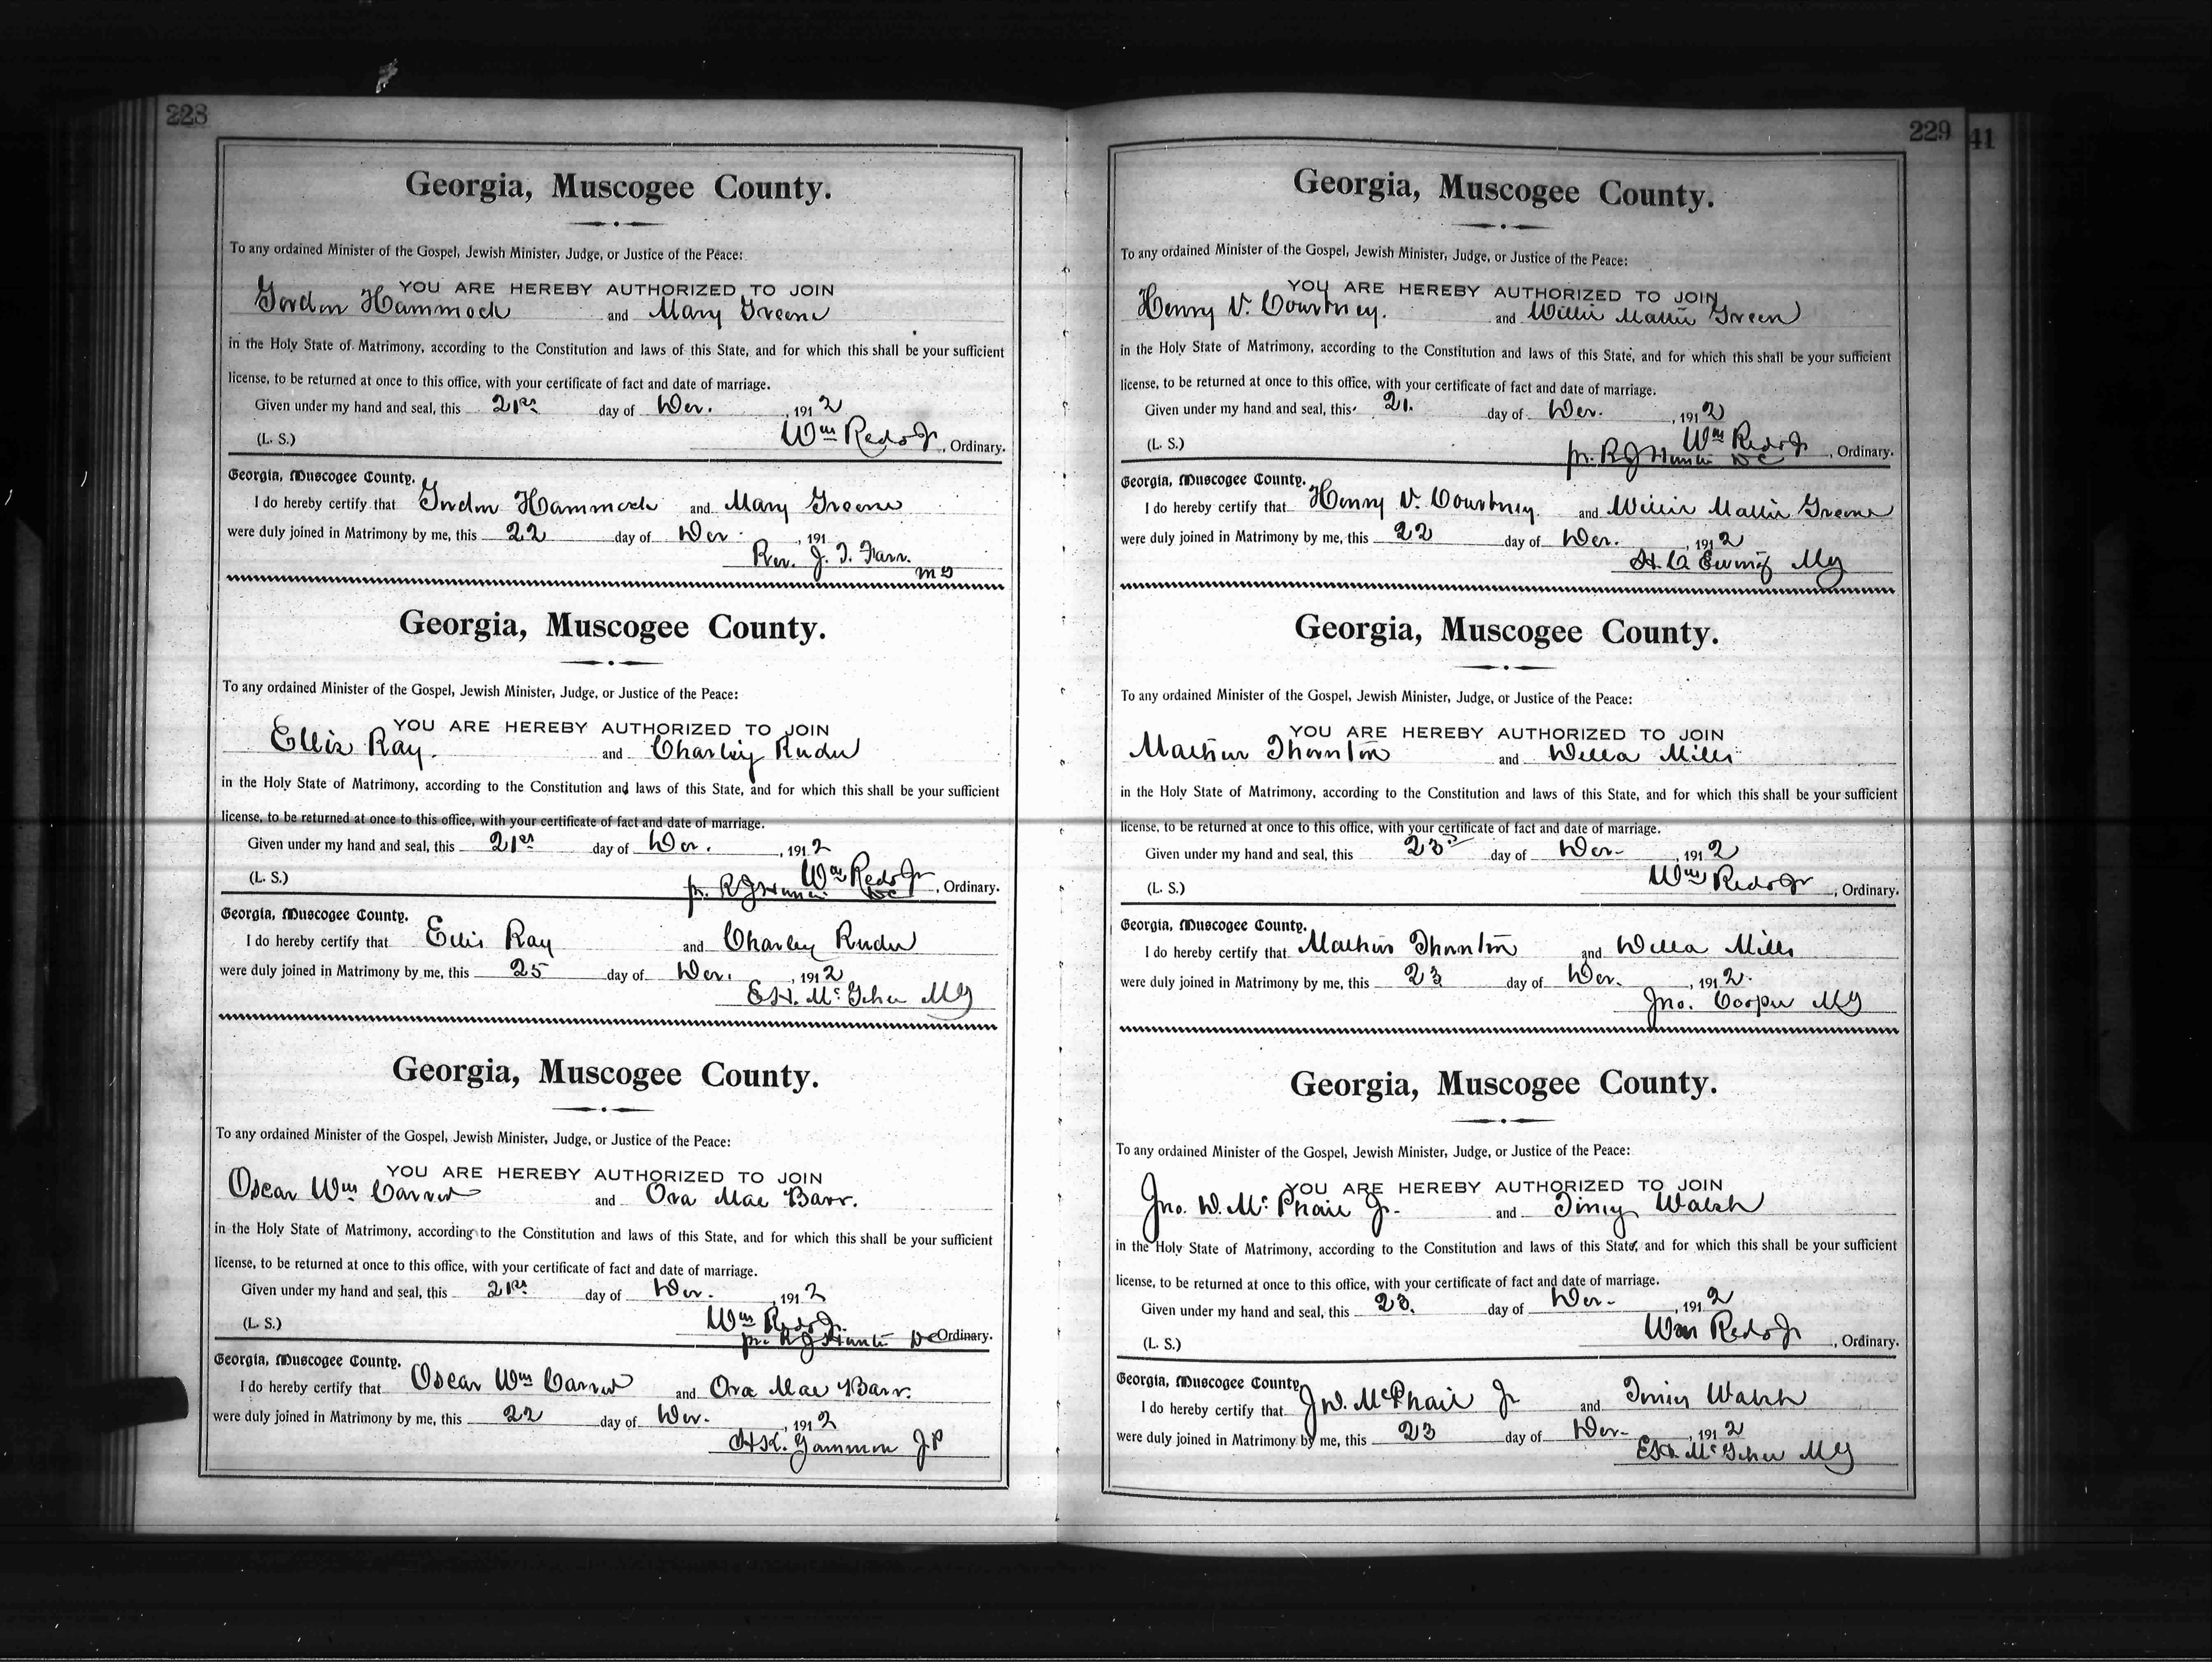 228
Georgia, Muscogee County.
To any ordained Minister of the Gospel, Jewish Minister, Judge, or Justice of the Peace:
YOU ARE HEREBY AUTHORIZED TO JOIN
Gordon Hammock and Mary Greene
in the Holy State of Matrimony, according to the Constitution and laws of this State, and for which this shall be your sufficient
license, to be returned at once to this office, with your certificate of fact and date of marriage.
Given under my hand and seal, this 21st day of Dec. , 1912
(L. S.) Wm Redd Jr , Ordinary.
Georgia, Muscogee County.
I do hereby certify that Gordon Hammock and Mary Greene
were duly joined in Matrimony by me, this 22 day of Dec. , 191
Rev. J. T. Farr. MG
Georgia, Muscogee County.
To any ordained Minister of the Gospel, Jewish Minister, Judge, or Justice of the Peace:
YOU ARE HEREBY AUTHORIZED TO JOIN
Ellis Ray. and Charley
in the Holy State of Matrimony, according to the Constitution and laws of this State, and for which this shall be your sufficient
license, to be returned at once to this office, with your certificate of fact and date of marriage.
Given under my hand and seal, this 21st day of Dec. , 1912
(L. S.) Wm Redd Jr , Ordinary.
pr. R J Hunter DC
Georgia, Muscogee County.
I do hereby certify that Ellis Ray and Charley
were duly joined in Matrimony by me, this 25 day of Dec. , 1912
MG
Georgia, Muscogee County.
To any ordained Minister of the Gospel, Jewish Minister, Judge, or Justice of the Peace:
YOU ARE HEREBY AUTHORIZED TO JOIN
Oscar Wm and Ora Mae Barr.
in the Holy State of Matrimony, according to the Constitution and laws of this State, and for which this shall be your sufficient
license, to be returned at once to this office, with your certificate of fact and date of marriage.
Given under my hand and seal, this 21st day of Dec. , 1912
Wm Redd Jr.
(L. S.) pr. R J Hunter DC Ordinary.
Georgia, Muscogee County.
I do hereby certify that Oscar Wm and Ora Mae Barr.
were duly joined in Matrimony by me, this 22 day of Dec. , 1912
Gammon J.P
229
41
Georgia, Muscogee County.
To any ordained Minister of the Gospel, Jewish Minister, Judge, or Justice of the Peace:
YOU ARE HEREBY AUTHORIZED TO JOIN
Henry V. Courtney. and Willie Mattie Green
in the Holy State of Matrimony, according to the Constitution and laws of this State, and for which this shall be your sufficient
license, to be returned at once to this office, with your certificate of fact and date of marriage.
Given under my hand and seal, this 21. day of Dec. , 1912
(L. S.) Wm Redd Jr , Ordinary.
pr. R J Hunter DC
Georgia, Muscogee County.
I do hereby certify that Henry V. Courtney. and Willie Mattie Greene
were duly joined in Matrimony by me, this 22 day of Dec. , 1912
Ewing MG
Georgia, Muscogee County.
To any ordained Minister of the Gospel, Jewish Minister, Judge, or Justice of the Peace:
YOU ARE HEREBY AUTHORIZED TO JOIN
Mathis Thornton and Della Mills
in the Holy State of Matrimony, according to the Constitution and laws of this State, and for which this shall be your sufficient
license, to be returned at once to this office, with your certificate of fact and date of marriage.
Given under my hand and seal, this 23 day of Dec. , 1912
(L. S.) Wm Redd Jr , Ordinary.
Georgia, Muscogee County.
I do hereby certify that Mathis Thornton and Della Mills
were duly joined in Matrimony by me, this 23 day of Dec. , 1912.
Jno. Cooper MG
Georgia, Muscogee County.
To any ordained Minister of the Gospel, Jewish Minister, Judge, or Justice of the Peace:
YOU ARE HEREBY AUTHORIZED TO JOIN
Jno. W. McPhail Jr. and Walsh
in the Holy State of Matrimony, according to the Constitution and laws of this State, and for which this shall be your sufficient
license, to be returned at once to this office, with your certificate of fact and date of marriage.
Given under my hand and seal, this 23. day of Dec. , 1912
(L. S.) Wm Redd Jr , Ordinary.
Georgia, Muscogee County.
I do hereby certify that J W. McPhail Jr and Walsh
were duly joined in Matrimony by me, this 23 day of Dec. , 1912
MG